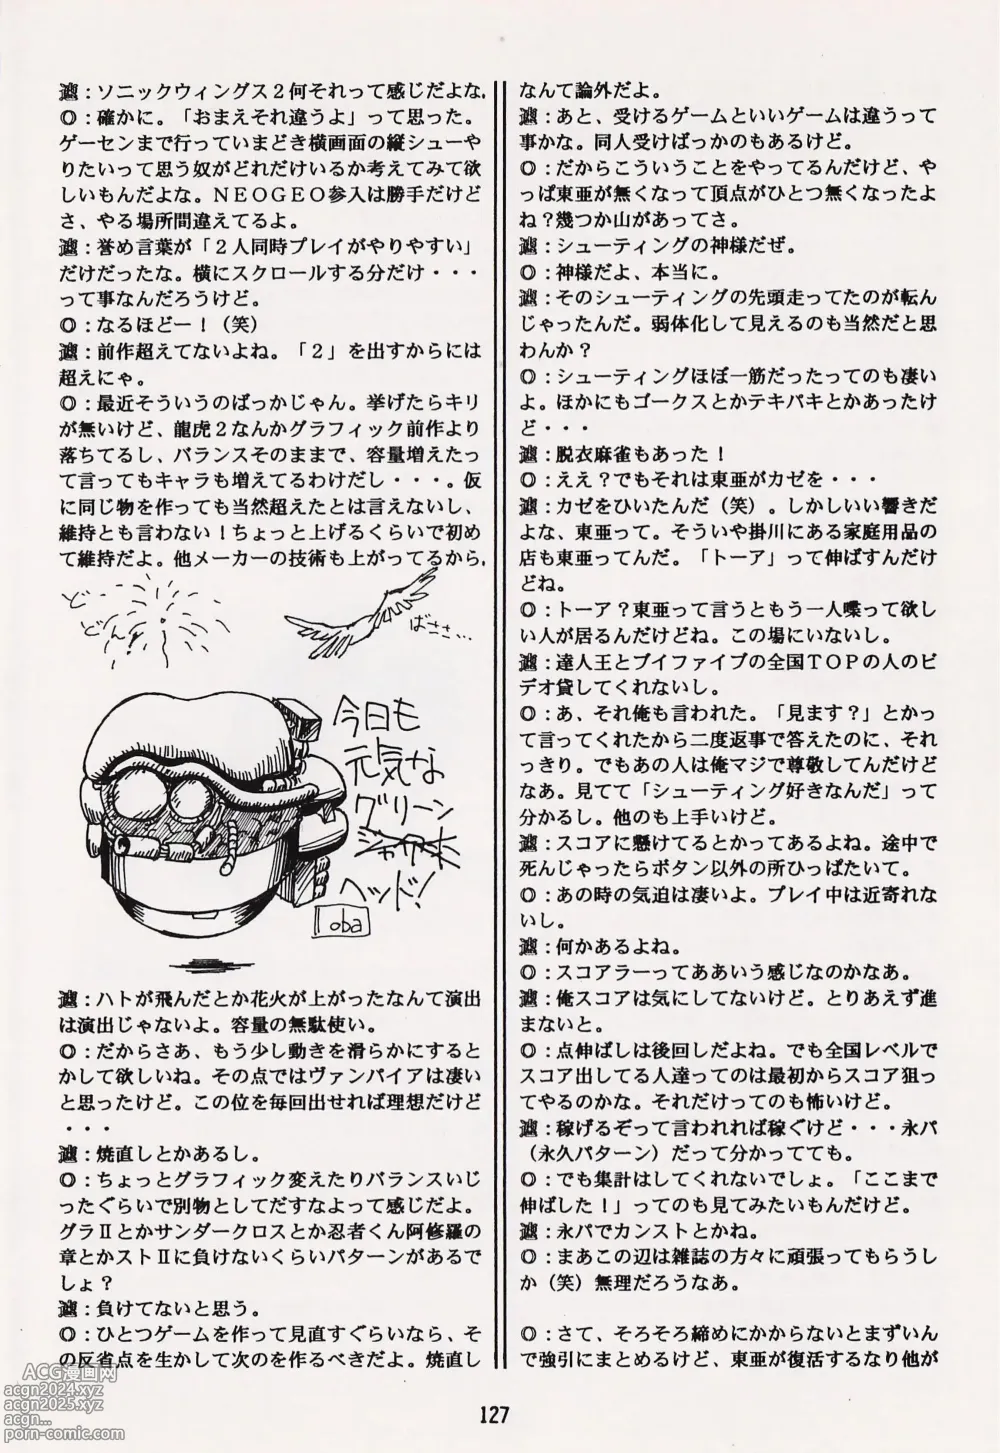 遨:ソニックウィングス2何それって感じだよな.
O:確かに。「おまえそれ違うよ」って思った。
ゲーセンまで行っていまどき横画面の縦シューや
りたいって思う奴がどれだけいるか考えてみて欲
しいもんだよな。NEOGEO参入は勝手だけど
さ、やる場所間違えてるよ。
遨:誉め言葉が「2人同時プレイがやりやすい」
だけだったな。横にスクロールする分だけ・・・
って事なんだろうけど。
O:なるほどー!(笑)
遨:前作超えてないよね。「2」を出すからには
超えにゃ。
O:最近そういうのばっかじゃん。挙げたらキリ
が無いけど、龍虎2なんかグラフィック前作より
落ちてるし、バランスそのままで、容量増えたっ
て言ってもキャラも増えてるわけだし・・・。仮
に同じ物を作っても当然超えたとは言えないし、
維持とも言わない!ちょっと上げるくらいで初め
て維持だよ。他メーカーの技術も上がってるから.
ど
どん!
ばささ…
今日も
元気な
グリーン
ヘッド!
Loba
遨:ハトが飛んだとか花火が上がったなんて演出
は演出じゃないよ。容量の無駄使い。
O:だからさあ、もう少し動きを滑らかにすると
かして欲しいね。その点ではヴァンパイアは凄い
と思ったけど。この位を毎回出せれば理想だけど
・・・
遨:焼直しとかあるし。
O:ちょっとグラフィック変えたりバランスいじ
ったぐらいで別物としてだすなよって感じだよ。
グラⅡとかサンダークロスとか忍者くん阿修羅の
章とかストⅡに負けないくらいパターンがあるで
しょ?
遨:負けてないと思う。
O:ひとつゲームを作って見直すぐらいなら、そ
の反省点を生かして次のを作るべきだよ。焼直し
なんて論外だよ。
遨:あと、受けるゲームといいゲームは違うって
事かな。同人受けばっかのもあるけど。
O:だからこういうことをやってるんだけど、や
っぱ東亜が無くなって頂点がひとつ無くなったよ
ね?幾つか山があってさ。
遨:シューティングの神様だぜ。
O:神様だよ、本当に。
遨:そのシューティングの先頭走ってたのが転ん
じゃったんだ。弱体化して見えるのも当然だと思
わんか?
O:シューティングほぼ一筋だったってのも凄い
よ。ほかにもゴークスとかテキパキとかあったけ
ど・・・
遨:脱衣麻雀もあった!
O:ええ?でもそれは東亜がカゼを・・・
遨:カゼをひいたんだ(笑)。しかしいい響きだ
よな、東亜って。そういや掛川にある家庭用品の
店も東亜ってんだ。「トーア」って伸ばすんだけ
どね。
O:トーア?東亜って言うともう一人喋って欲し
い人が居るんだけどね。この場にいないし。
遨:達人王とブイファイブの全国TOPの人のビ
デオ貸してくれないし。
O:あ、それ俺も言われた。「見ます?」とかっ
て言ってくれたから二度返事で答えたのに、それ
っきり。でもあの人は俺マジで尊敬してんだけど
なあ。見てて「シューティング好きなんだ」って
分かるし。他のも上手いけど。
遨:スコアに懸けてるとかってあるよね。途中で
死んじゃったらボタン以外の所ひっぱたいて。
O:あの時の気迫は凄いよ。プレイ中は近寄れな
いし。
遨:何かあるよね。
O:スコアラーってああいう感じなのかなあ。
遨:俺スコアは気にしてないけど。とりあえず進
まないと。
O:点伸ばしは後回しだよね。でも全国レベルで
スコア出してる人達ってのは最初からスコア狙っ
てやるのかな。それだけってのも怖いけど。
遨:稼げるぞって言われれば稼ぐけど・・・永パ
(永久パターン)だって分かってても。
O:でも集計はしてくれないでしょ。「ここまで
伸ばした!」ってのも見てみたいもんだけど。
遨:永パでカンストとかね。
O:まあこの辺は雑誌の方々に頑張ってもらうし
か(笑)無理だろうなあ。
O:さて、そろそろ締めにかからないとまずいん
で強引にまとめるけど、東亜が復活するなり他が
ACG漫画网
acgn2024.xyz
acgn2025.xyz
acgn...
porn-comic.com
127